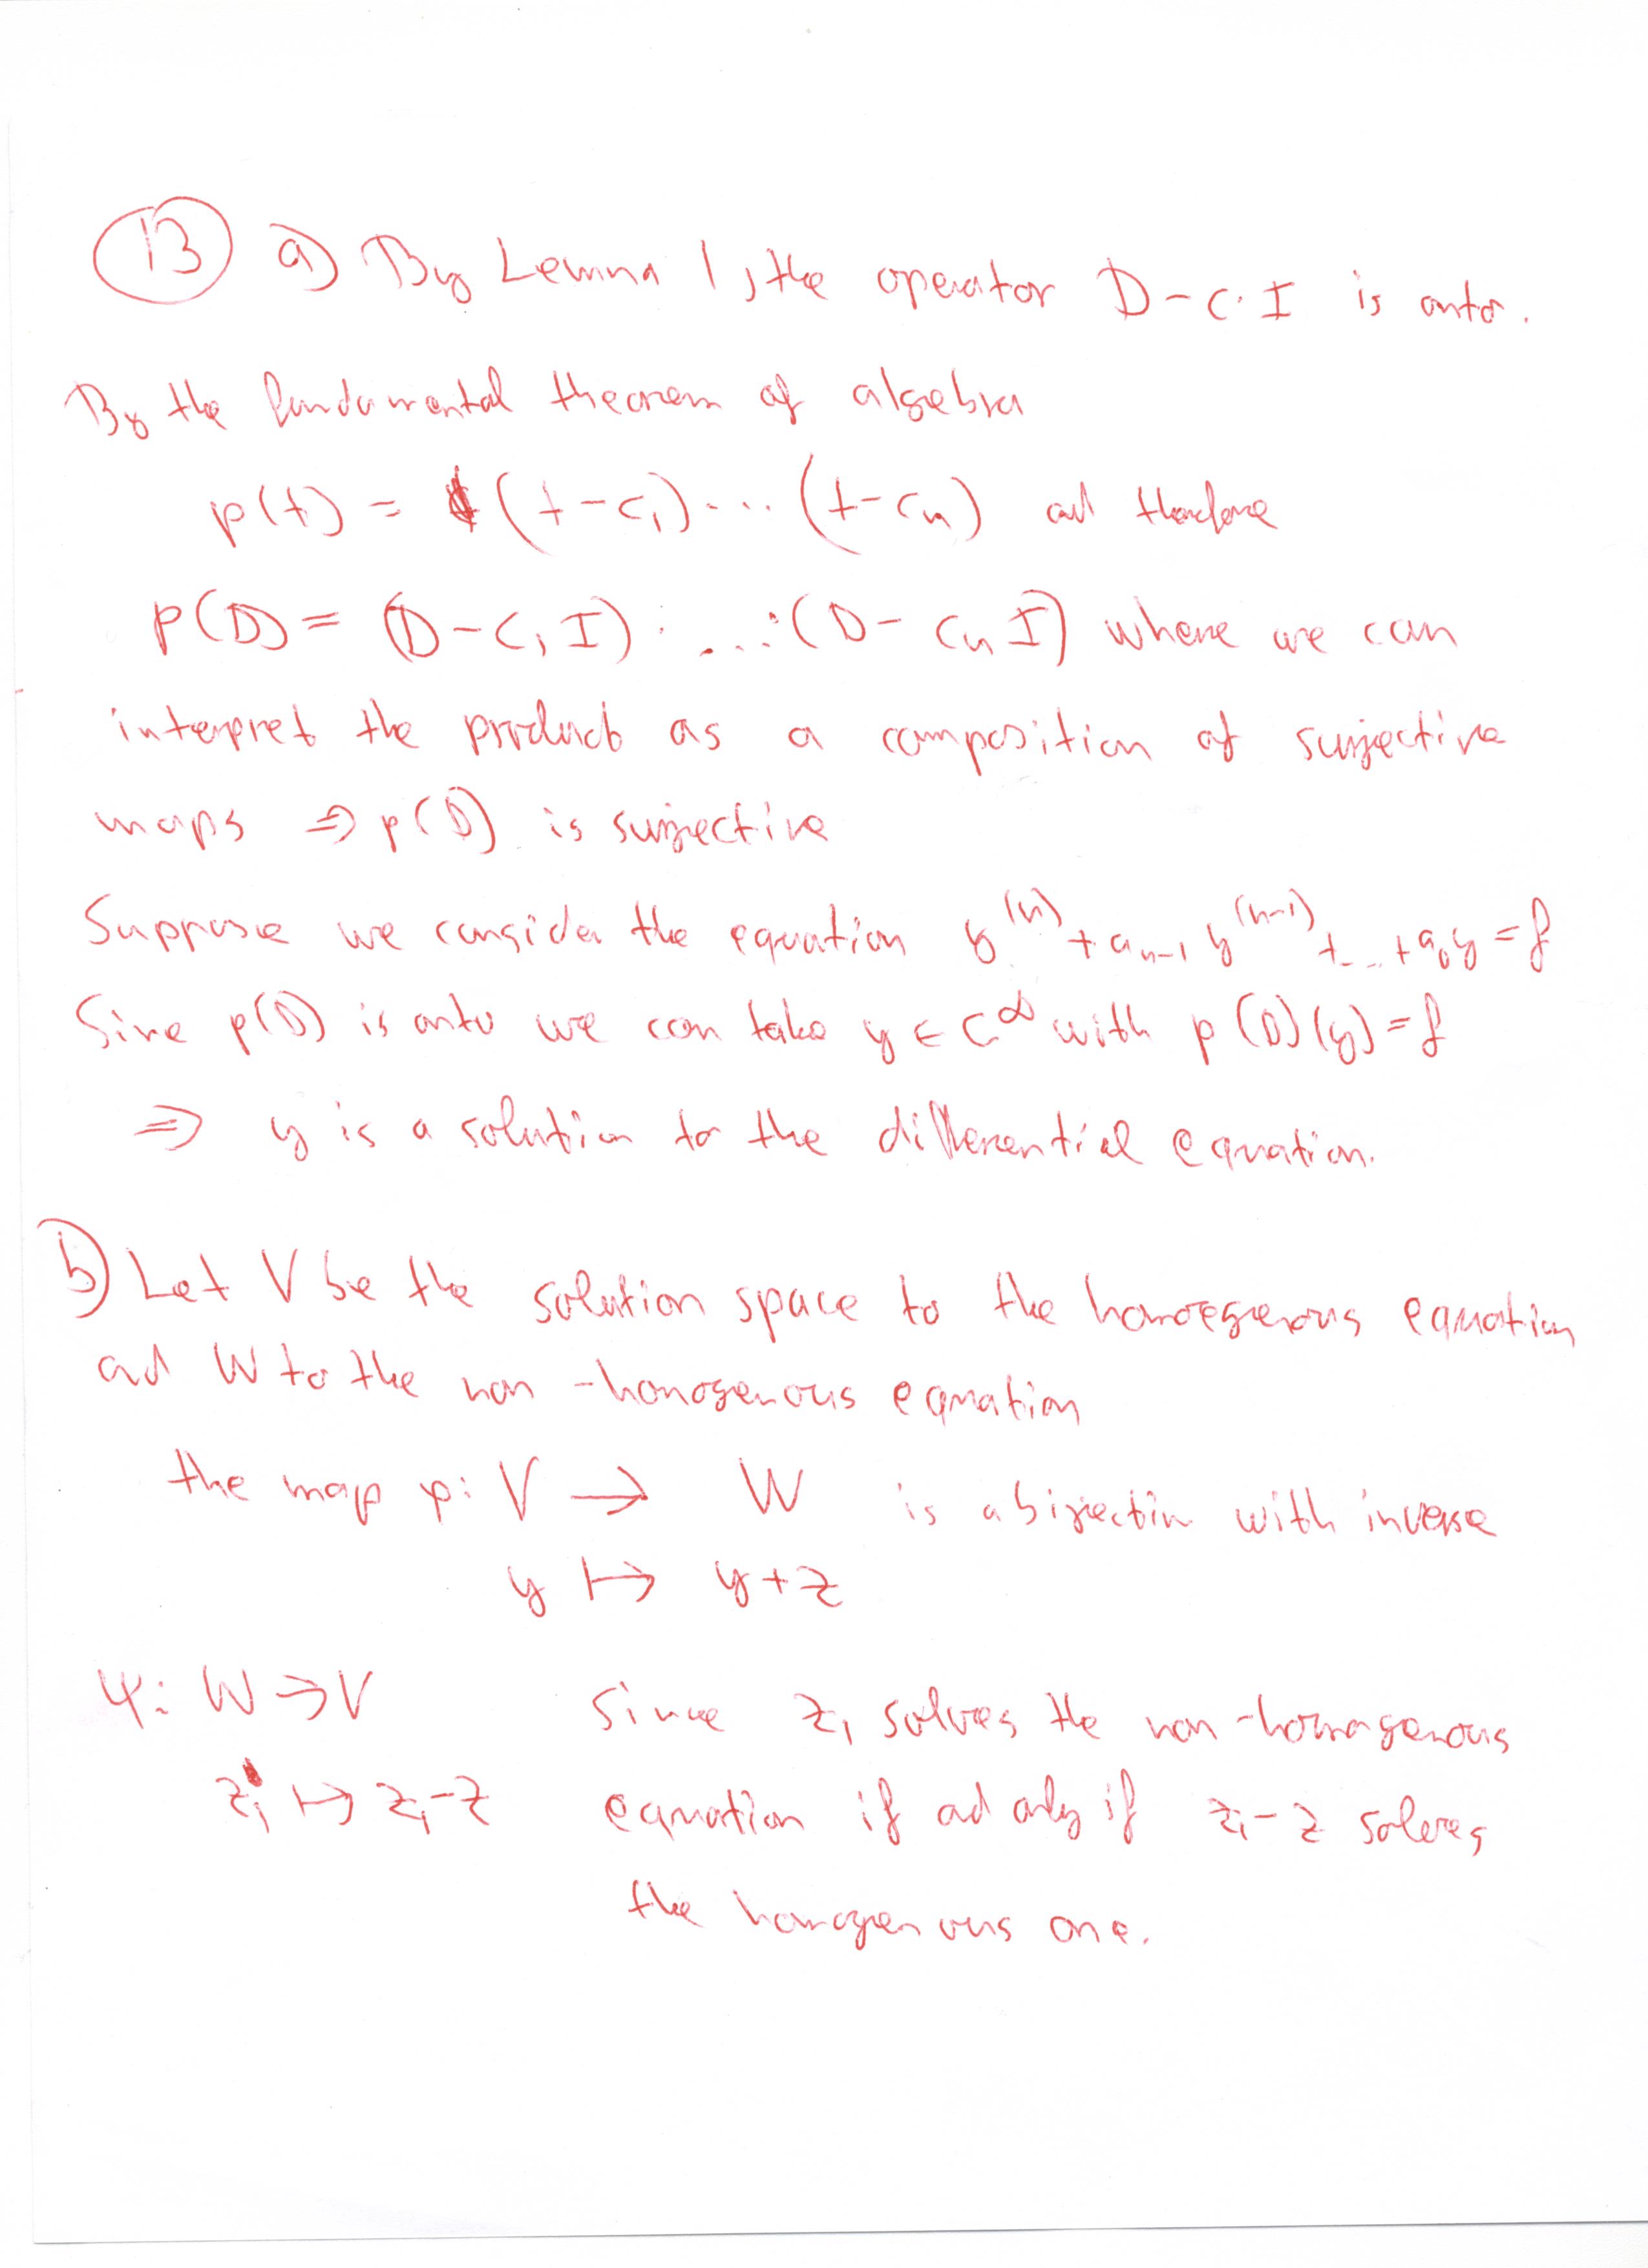 13 a) By Lemma 1, the operator D - c·I is onto.
By the fundamental theorem of algebra
p(t) = (t-c₁)...(t-cₙ) ad therefore
p(D) = (D-c₁I)·...·(D-cₙI) where we can
interpret the product as a composition of surjective
maps ⇒ p(D) is surjective
Suppose we consider the equation y⁽ⁿ⁾ + aₙ₋₁ y⁽ⁿ⁻¹⁾ + ... + a₀y = f
Sine p(D) is onto we can take y ∈ C^∞ with p(D)(y) = f
⇒ y is a solution to the differential equation.
b) Let V be the solution space to the homoegenous equation
ad W to the non-homogenous equation
the map φ: V → W is a bijection with inverse
y ↦ y+z
Ψ: W → V Since z₁ solves the non-homogenous
z₁ ↦ z₁-z equation if ad only if z₁-z solves
the homogenous one.